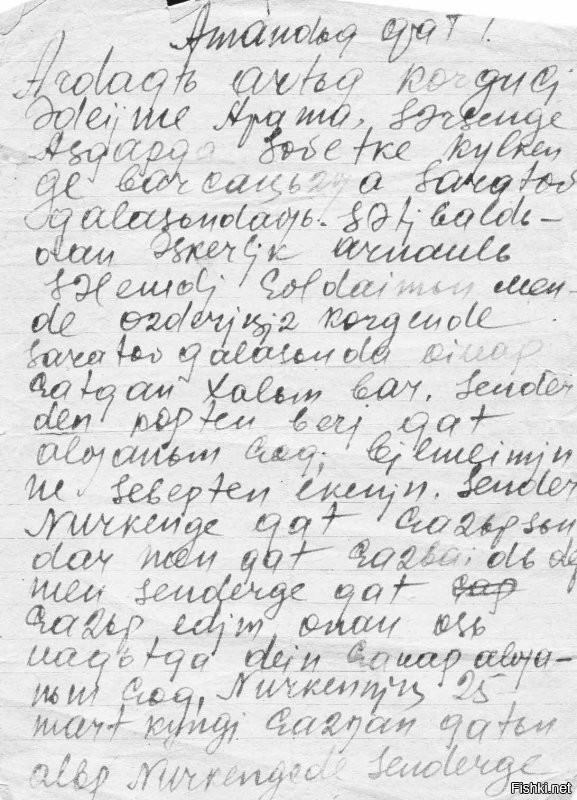 Amandьq qat!
Ardaqtь artьq korgucj
Apama, sərsenge
Asqarga Sovetke kylken
ge barcaŋьzƣa Saratov
qalasьndaƣь.
Əskerljk arnaulь
Səlemdj Çoldaimьn men-
de ozderjŋjz korgende
Saratov qalasьnda oinap
Çatqan Xalьm bar. Sender
den kopten berj qat
alƣanьm Çoq, bjlmeimjn
ne sebepten ekenjn. Sender
Nurkenge qat Çazьpsьn
dar man qat Çazbaidь dep
men senderge qat
Çazьp edjm onan osь
uaqьtqa dein Çauap alƣa-
nьm Çoq, Nurkennjŋ 25
mart kyngi Çazƣan qatьn
alьp Nurkengede senderge
Fishki.net